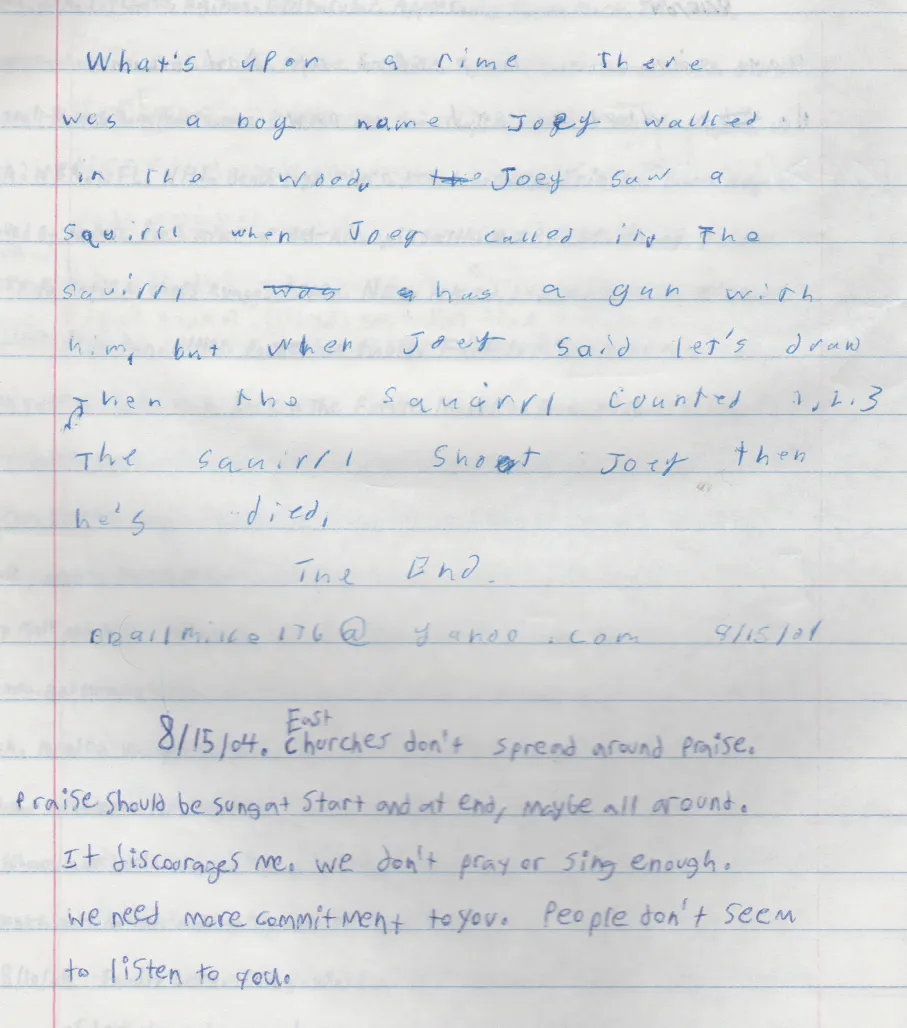 What's upon a time There
was a boy name Joey walked
in the wood, Joey saw a
squirrl when Joey called it, The
squirrl was has a gun with
him, but when Joey said let's draw
Then the Squirrl Counted 1, 2, 3
The Squirrl Shoot Joey then
he's died,
The End.
@ yahoo.com
8/15/04. East Churches don't spread around Praise.
Praise should be sung at Start and at end, maybe all around.
It discourages me. we don't pray or Sing enough.
we need more commitment to you. People don't seem
to listen to you.